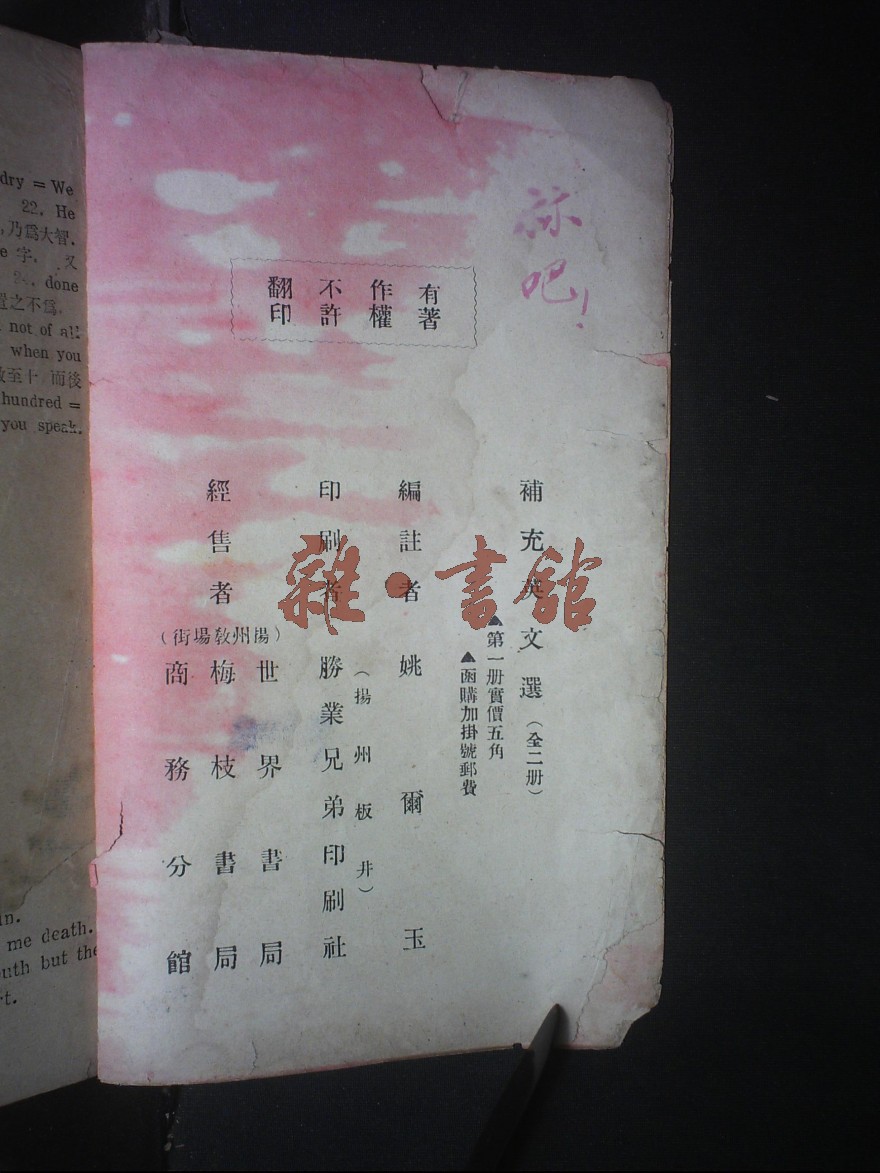 有著
作權
不許
翻印
補充英文選(全二册)
▲第一册實價五角
▲函購加掛號郵費
編註者 姚爾玉
印刷者 勝業兄弟印刷社
(揚州板井)
經售者
(揚州教場街)
世界書局
梅枝書局
商務分館
雜·書館
吧!
dry = We
22. He
乃爲大智.
e 字. 又
done
置之不爲.
not of all
when you
至十 而後
hundred =
you speak.
in.
me death.
uth but the
t.